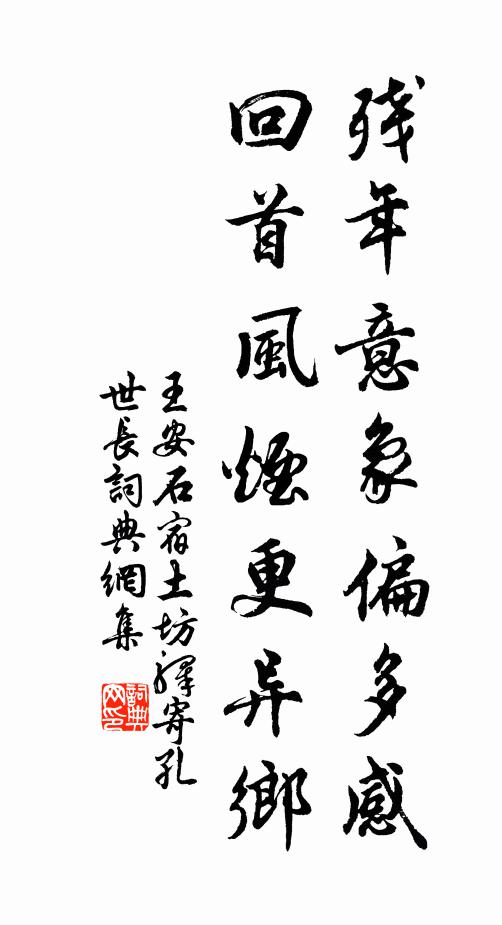 残年意象偏多感
回首風煙更异鄉
王安石宿土坊驛寄孔
世長詞典網集
詞典
网印